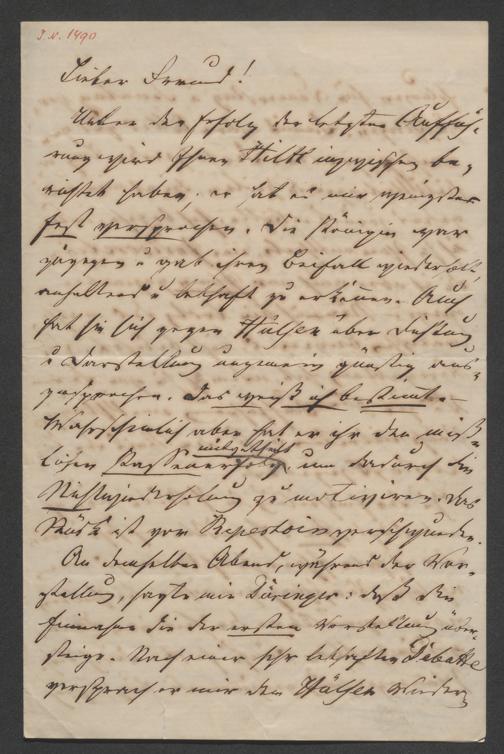 J.N. 1490
Lieber Freund!
Ueber den Erfolg der letzten Auffüh-
rung wird Ihnen Hiltl inzwischen be-
richtet haben, er hat es mir wenigstens
fest versprochen. Die Königin war
zugegen u gab ihren Beifall wiederholt,
anhaltend u lebhaft zu erkennen. Auch
hat sie sich gegen Hülsen über Dichtung
u Darstellung ungemein günstig aus-
gesprochen. Das weiß ich bestimt. –
Wahrscheinlich aber hat er ihr den miß-
lichen Kassenerfolg mitgetheilt um dadurch die
Nichtwiederholung zu motiviren. Das
Stück ist vom Repertoir verschwunden.
An demselben Abend, während der Vor-
stellung, sagte mir Düringer: daß die
Einnahme die der ersten Vorstellung über-
steige. Nach einer sehr lebhaften Debatte
versprach er mir den Hülsen wieder